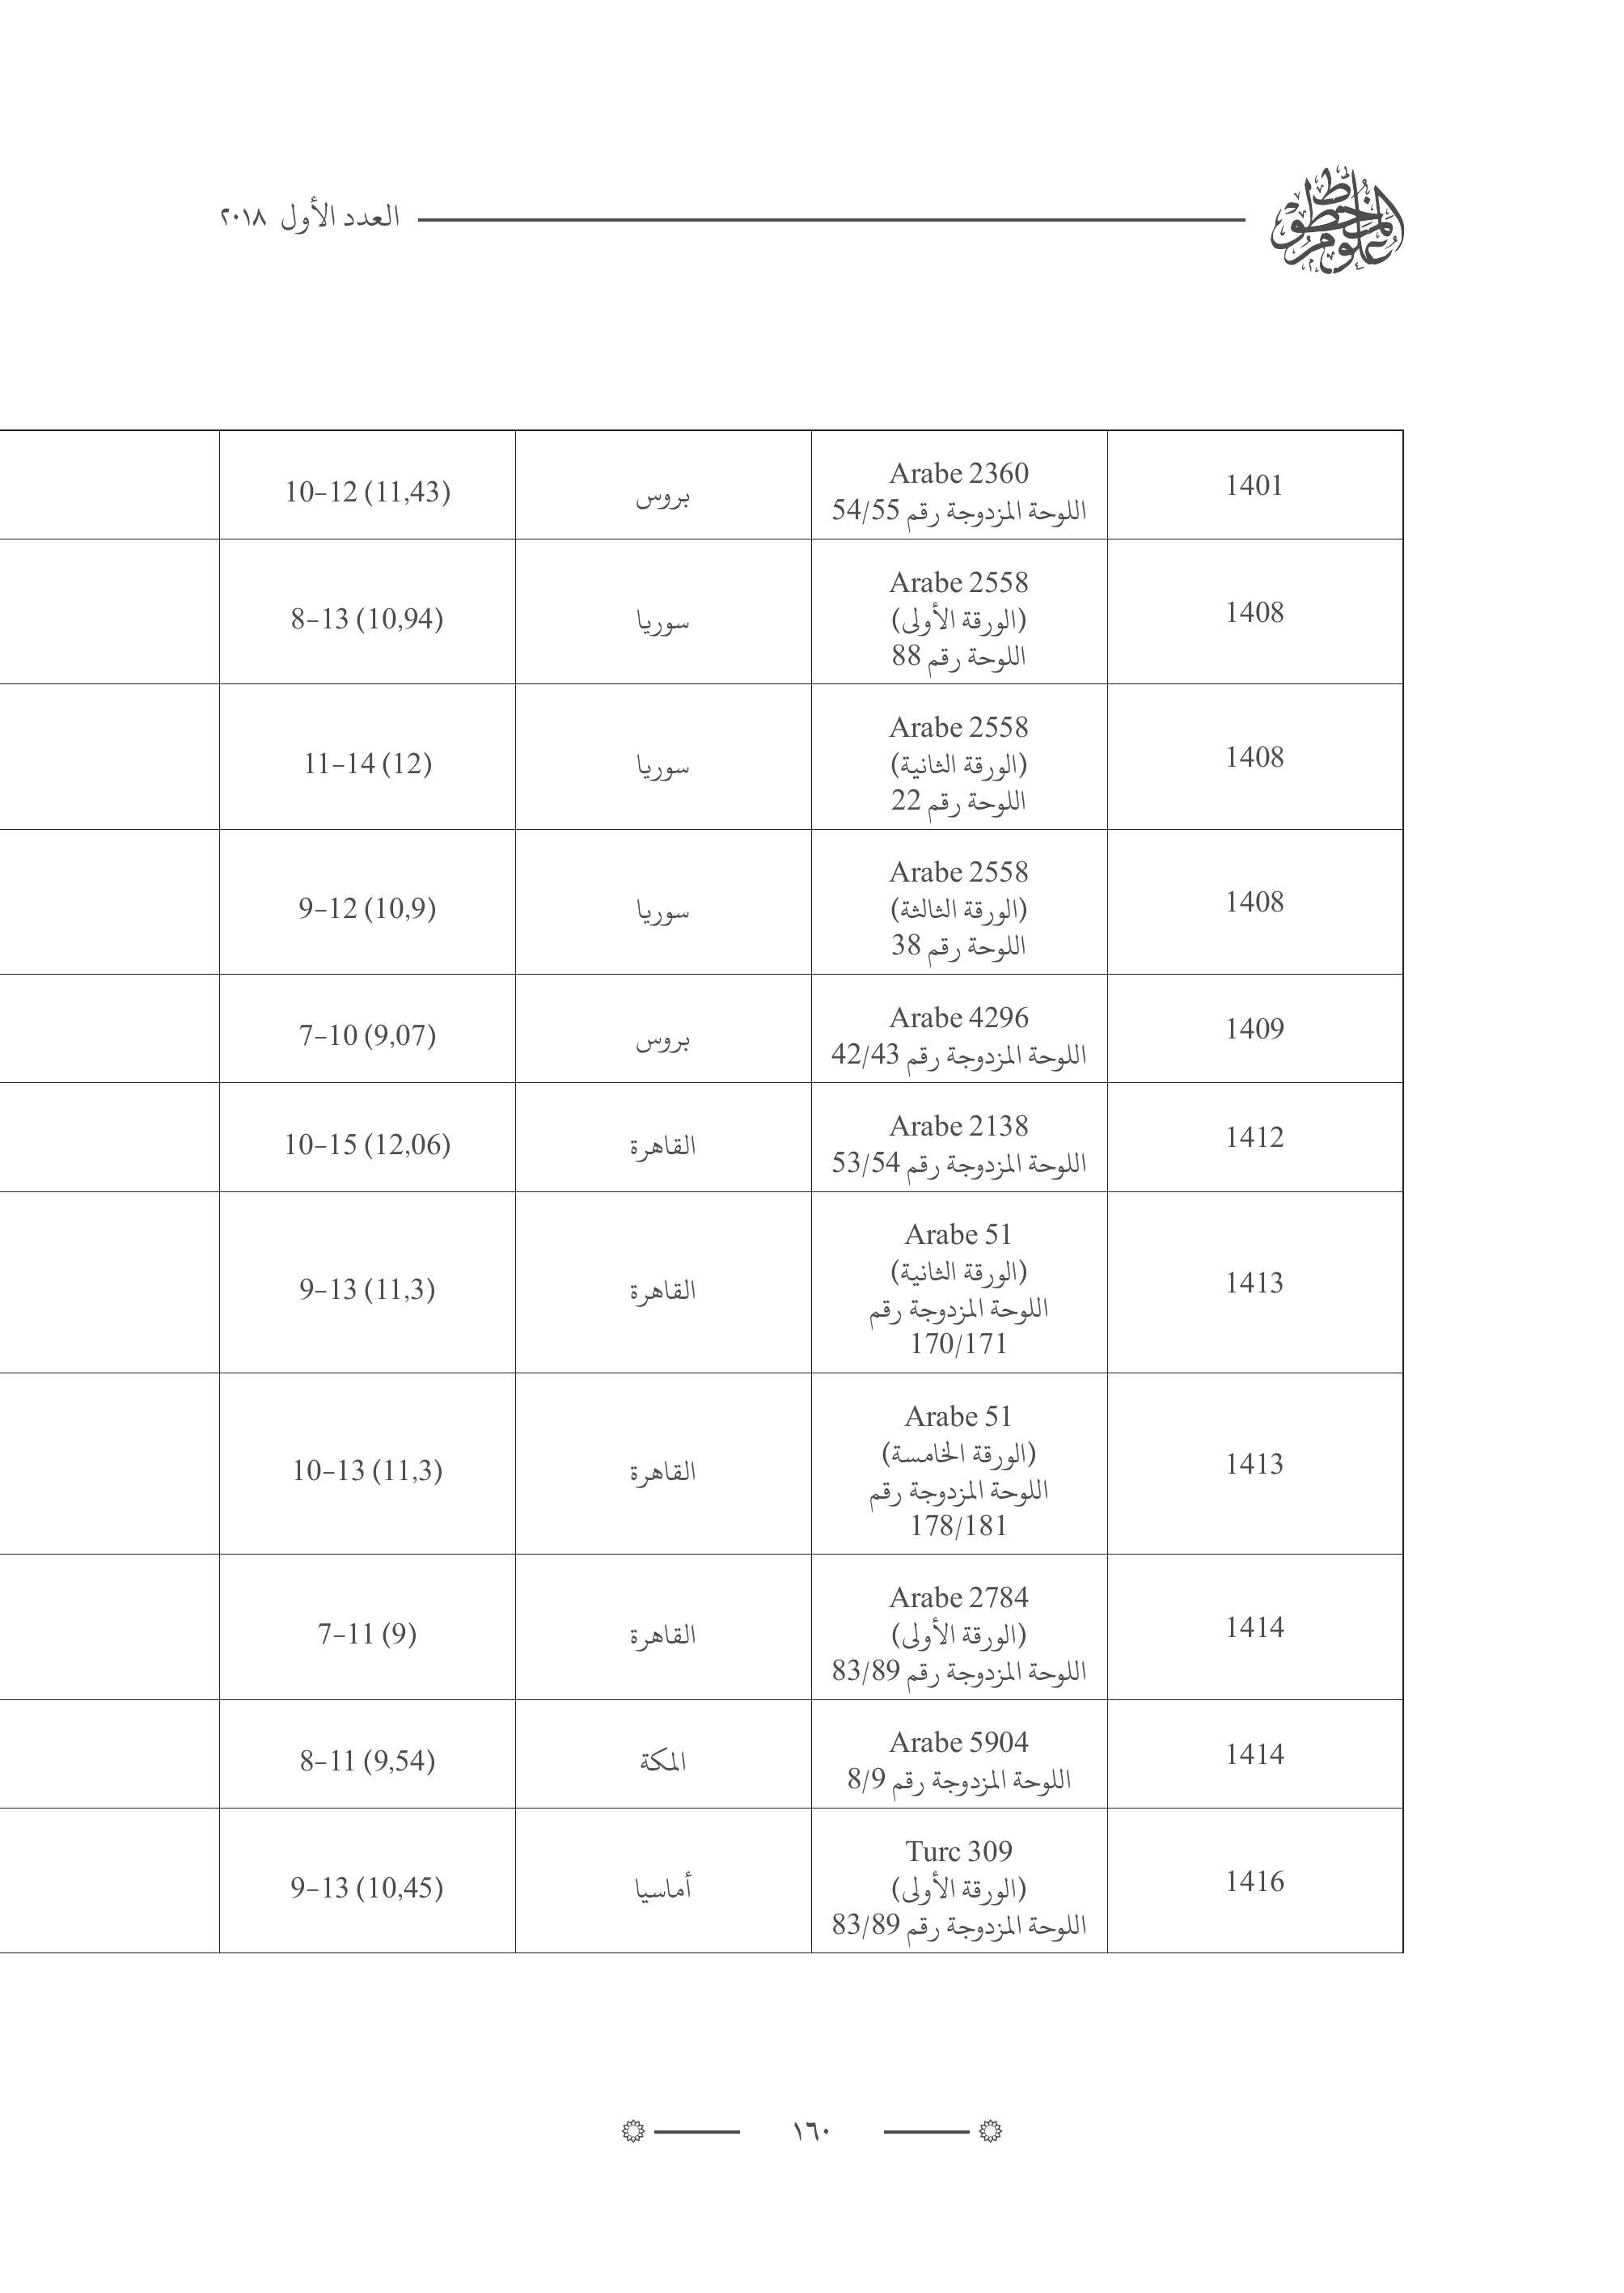 علوم المخطوط
العدد الأول ٢٠١٨
1401
Arabe 2360
اللوحة المزدوجة رقم 54/55
بروس
10–12 (11,43)
1408
Arabe 2558
(الورقة الأولى)
اللوحة رقم 88
سوريا
8–13 (10,94)
1408
Arabe 2558
(الورقة الثانية)
اللوحة رقم 22
سوريا
11–14 (12)
1408
Arabe 2558
(الورقة الثالثة)
اللوحة رقم 38
سوريا
9–12 (10,9)
1409
Arabe 4296
اللوحة المزدوجة رقم 42/43
بروس
7–10 (9,07)
1412
Arabe 2138
اللوحة المزدوجة رقم 53/54
القاهرة
10–15 (12,06)
1413
Arabe 51
(الورقة الثانية)
اللوحة المزدوجة رقم
170/171
القاهرة
9–13 (11,3)
1413
Arabe 51
(الورقة الخامسة)
اللوحة المزدوجة رقم
178/181
القاهرة
10–13 (11,3)
1414
Arabe 2784
(الورقة الأولى)
اللوحة المزدوجة رقم 83/89
القاهرة
7–11 (9)
1414
Arabe 5904
اللوحة المزدوجة رقم 8/9
المكة
8–11 (9,54)
1416
Turc 309
(الورقة الأولى)
اللوحة المزدوجة رقم 83/89
أماسيا
9–13 (10,45)
١٦٠